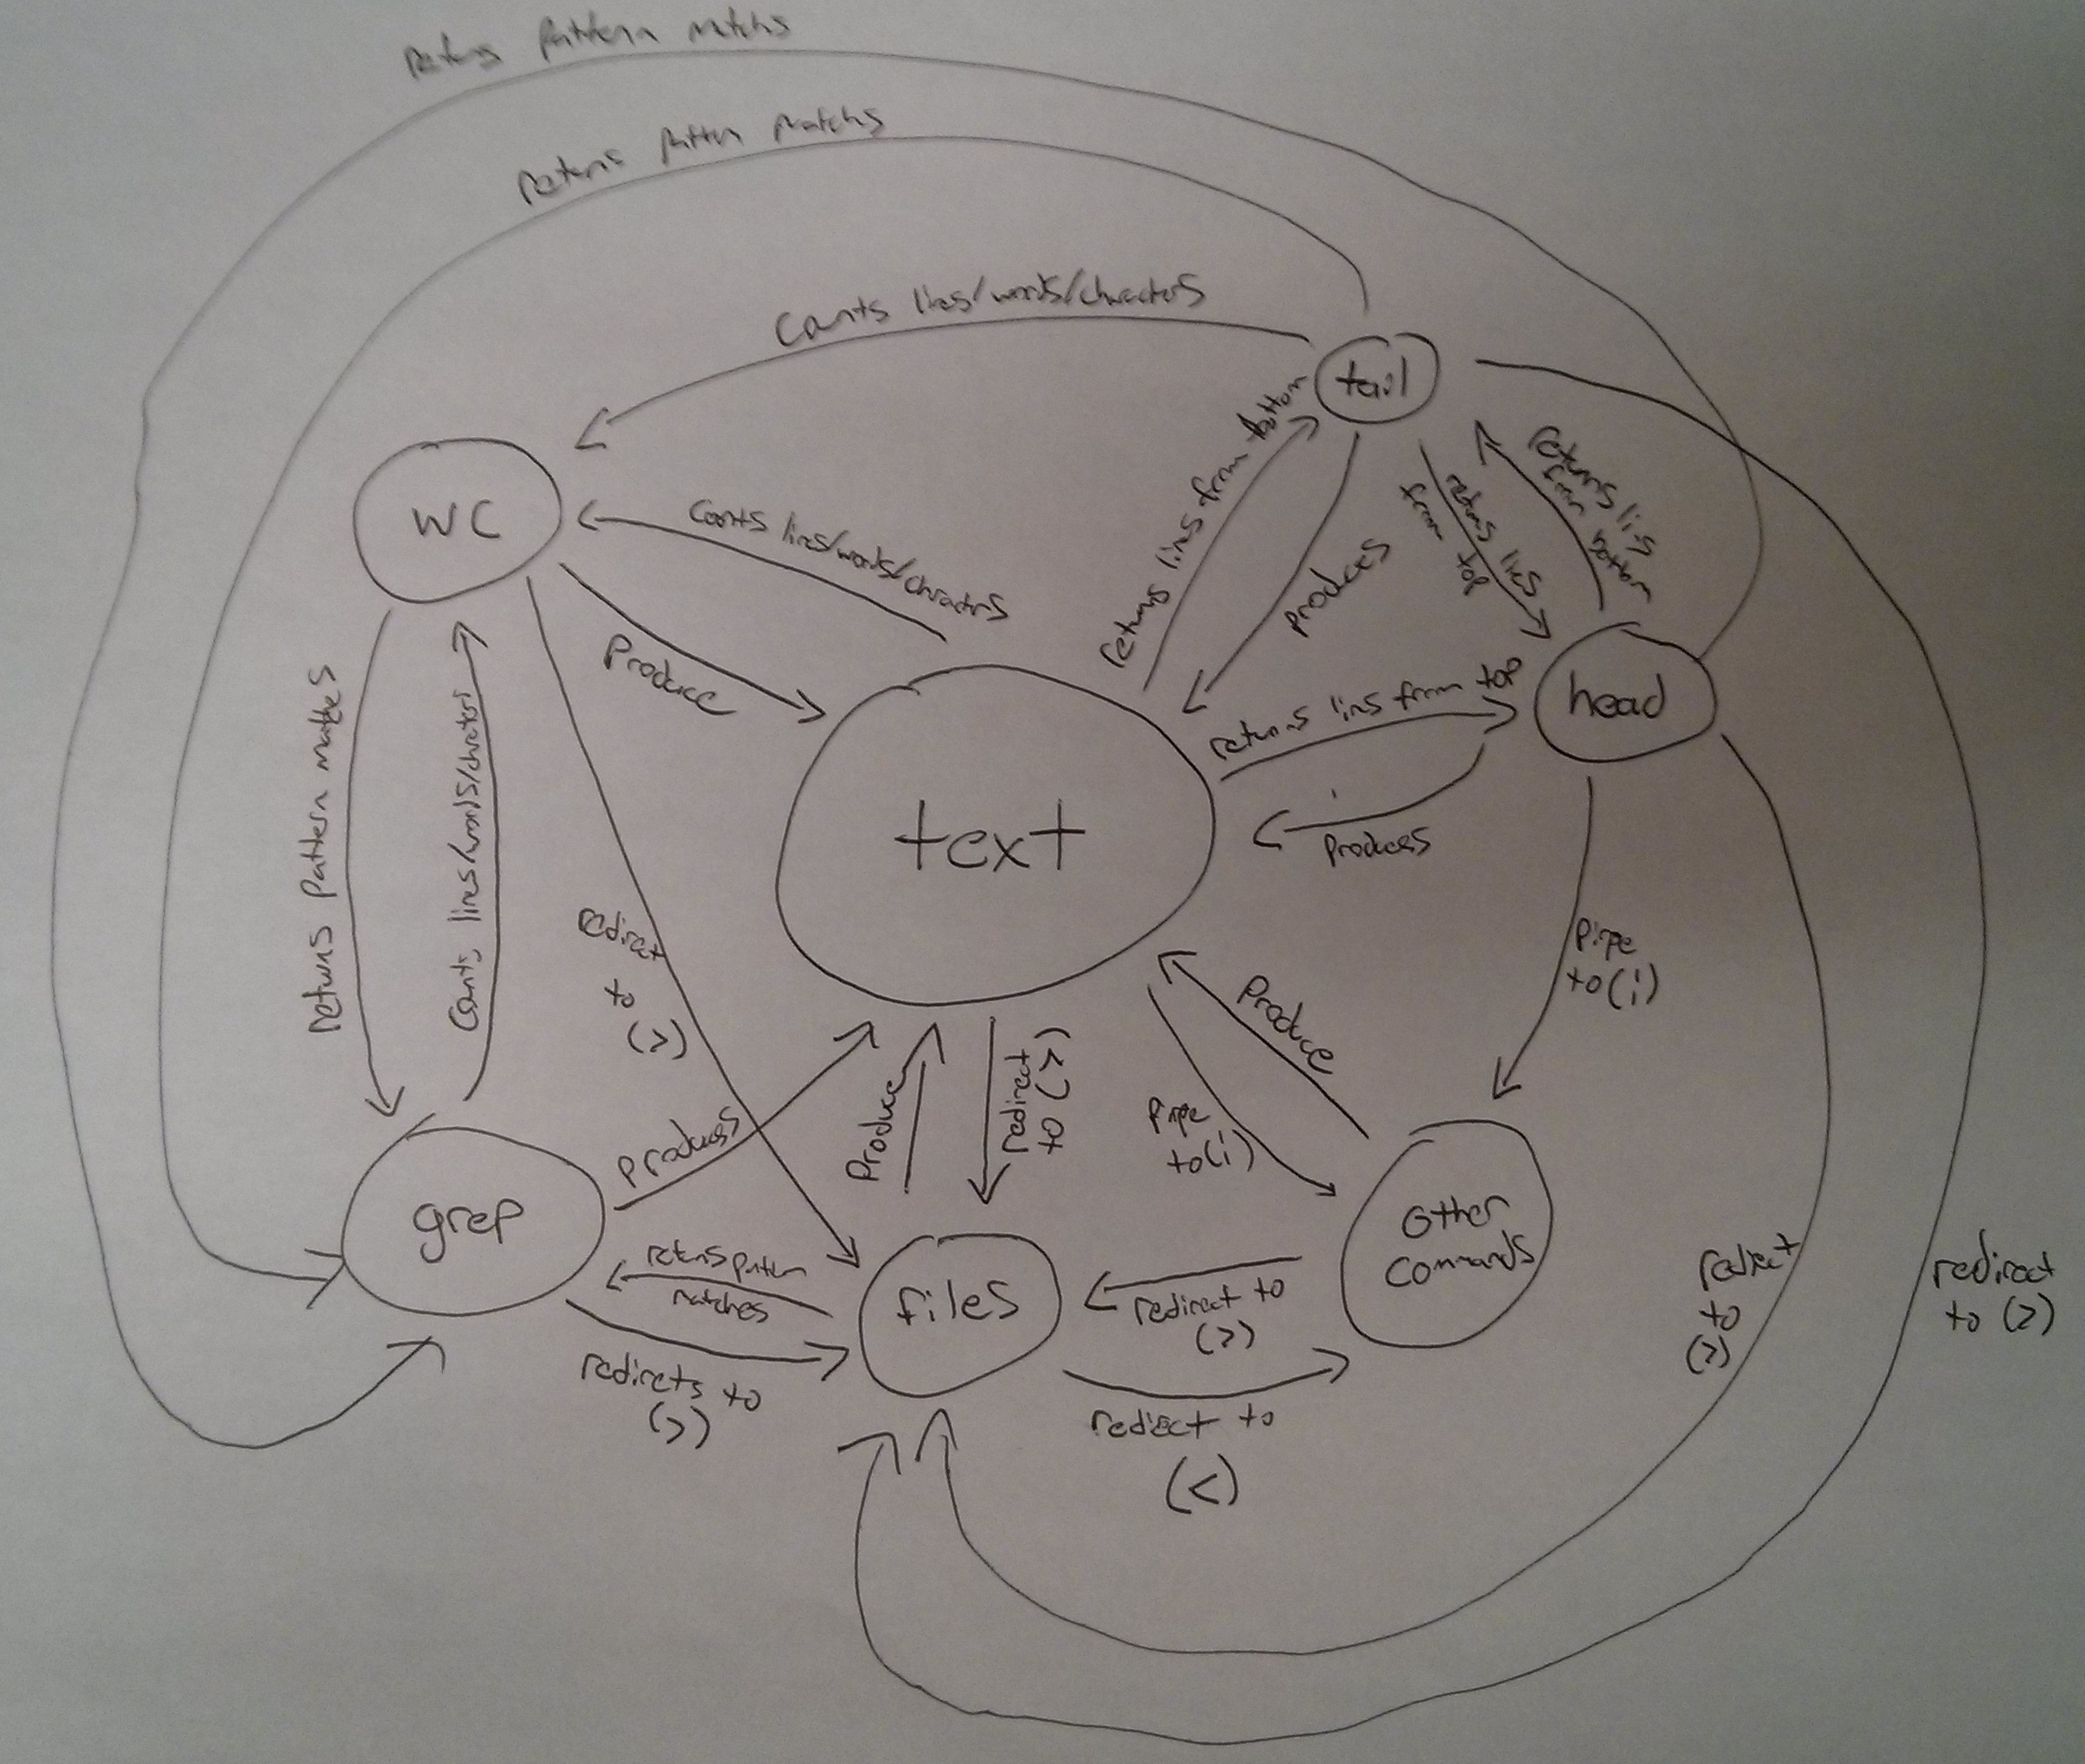 returns pattern matchs
returns pattern matchs
Counts lines/words/charactors
tail
returns lines from bottom
produces
returns lines
from top
returns lines
from bottom
WC
Counts lines/words/charactors
Produce
head
returns lines from top
produces
text
returns pattern mathes
Counts lines/words/charators
redirect
to
(>)
Pipe
to(¦)
Produce
Pipe
to(¦)
Produces
Produce
redirect
to (>)
grep
returns pattern
matches
redirects to
(>)
files
other
commands
redirect to
(>)
redirect to
(<)
redirect
to
(>)
redirect
to (>)